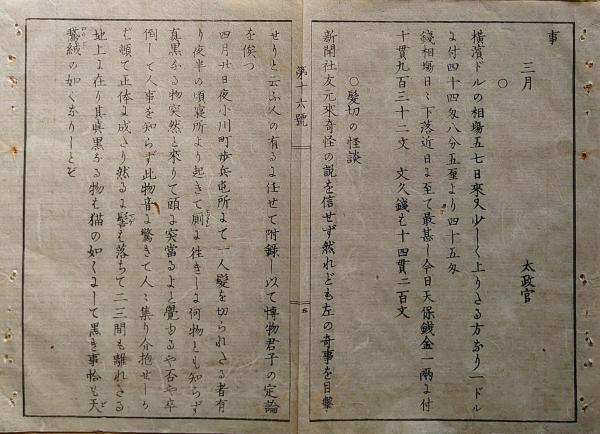 事
三月　太政官
〇
橫濱ドルの相場五七日來又少しく上りたる方なり一ドル
に付四十四匁八分五厘より四十五匁
錢相場日〻下落近日に至て最甚し今日天保錢金一兩に付
十貫九百三十二文　文久錢も十四貫二百文
〇髮切の怪談
新聞社友元來奇怪の説を信せず然れども左の奇事を目擊
第十六號
五
せりと云ふ人の有るに任せて附錄し以て博物君子の定論
を俟つ
四月廿日夜小川町歩兵屯所にて一人髮を切られたる者有
り夜半の頃寢所より起きて厠に徃きしに何物とも知らず
真黑なる物突然と來りて頭に突當るよと覺ゆるや否や卒
倒して人事を知らず此物音に驚きて人〻集り介抱せしか
ば頓て正体に成たり然るに髻も落ちて二三間も離れたる
地上に在り其眞黑なる物も猫の如くにして黑き事恰も天
鵞絨の如くなりしとぞ